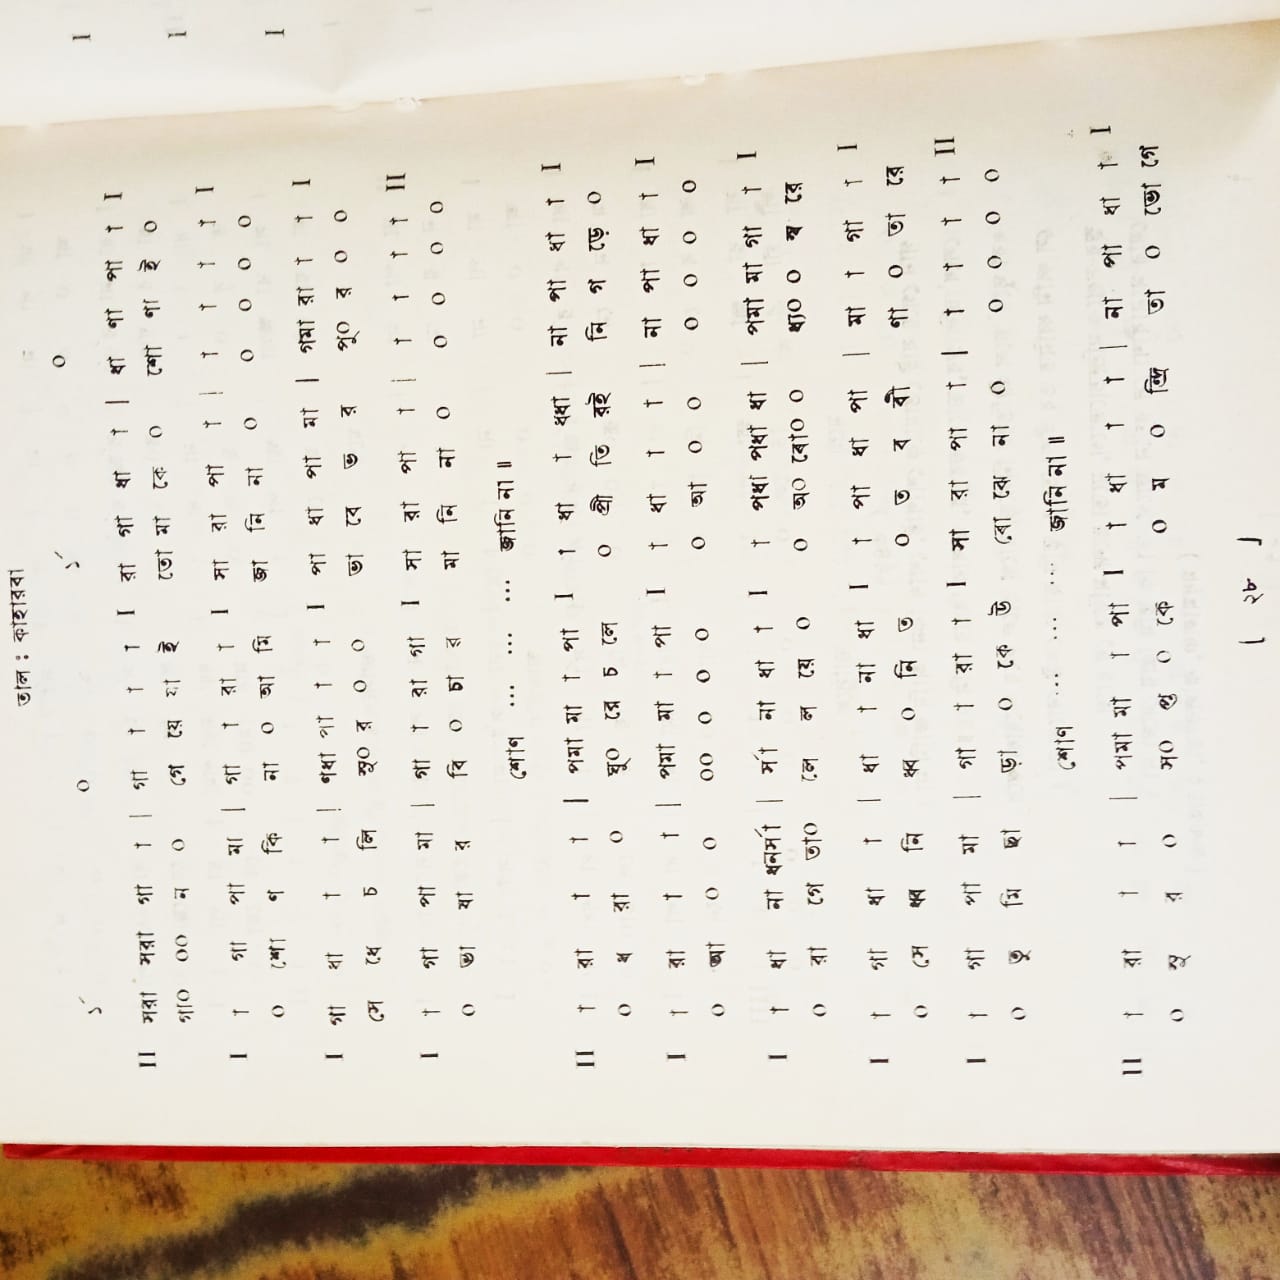 তাল : কাহারবা
১´ ০ ১´ ০
II সরা সরা গা † | গা † † † I রা গা ধা † | ধা ণা পা † I
গা০ ০০ ন ০ গে য়ে যা ই তো মা কে ০ শো ণা ই ০
I † গা পা মা | গা † রা † I সা রা পা † | † † † † I
০ শো ণ কি না ০ আ মি জা নি না ০ ০ ০ ০ ০
I গা ধা † † | ণধা পা † † I পা ধা পা মা | গমা রা † † I
সে ধে চ লি সু০ র ০ ০ ভা বে ভ র পূ০ র ০ ০
I † গা পা মা | গা † রা গা I সা রা পা † | † † † † II
০ ভা যা র বি ০ চা র মা নি না ০ ০ ০ ০ ০
শোণ ... ... ... জানি না॥
II † রা † † | পমা মা † পা I † ধা † ধধা | না পা ধা † I
০ ধ রা ০ ঘূ০ রে চ লে ০ প্রী তি রই নি গ ড়ে ০
I † রা † † | পমা মা † পা I † ধা † † | না পা ধা † I
০ আ ০ ০ ০০ ০ ০ ০ ০ আ ০ ০ ০ ০ ০ ০
I † ধা না ধনর্সা | র্সা না ধা † I † পধা পধা ধা | পমা মা গা † I
০ রা গে তা০ লে ল য়ে ০ ০ অ০ ঝো০ ০ ধ্য০ ০ স্ব রে
I † গা ধা † | ধা † না ধা I † পা ধা পা | মা † গা † I
০ সে ধ্ব নি ধ্ব ০ নি ত ০ ত ব বী ণা ০ তা রে
I † গা পা মা | গা † রা † I সা রা পা † | † † † † II
০ তু মি ছা ড়া ০ কে উ বো ঝে না ০ ০ ০ ০ ০
শোণ ... ... ... জানি না॥
II † রা † † | পমা মা † পা I † ধা † † | না পা ধা † I
০ সু র ০ স০ প্ত ০ কে ০ ম ০ ন্দ্রি তা ০ ভো গে
[ ২৮ ]